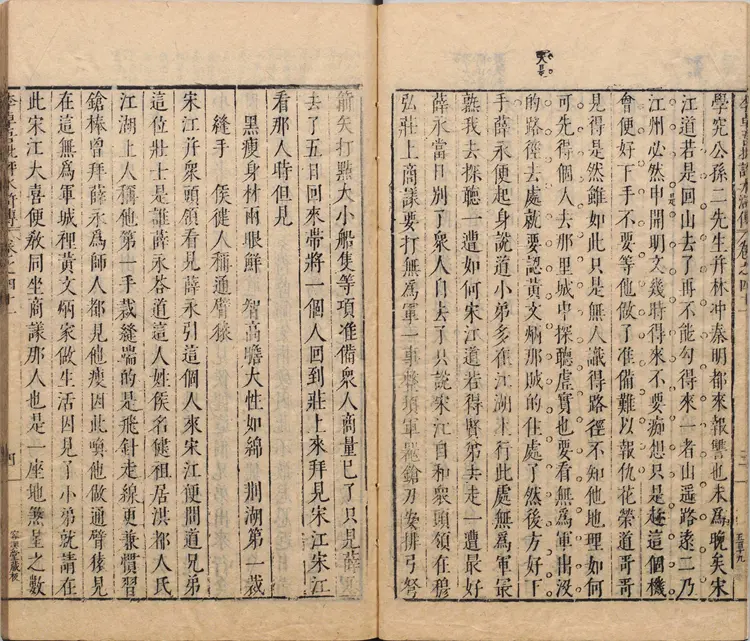 學究公孫二先生并林冲秦明都來報讐也未為晚矣宋
江道若是回山去了再不能勾得來一者山遥路遠二乃
江州必然申開明文幾時得來不要痴想只是趂這個機
會便好下手不要等他做了准備難以報仇花榮道哥哥
見得是然雖如此只是無人識得路徑不知他地理如何
可先得個人去那里城中探聽虛實也要看無為軍出没
的路徑去處就要認黃文炳那賊的住處了然後方好下
手薛永便起身說道小弟多在江湖上行此處無為軍最
熟我去探聽一遭如何宋江道若得賢弟去走一遭最好
薛永當日别了衆人自去了只說宋江自和衆頭領在穆
弘莊上商議要打無為軍一事整頓軍器鎗刀安排弓弩
箭矢打點大小船隻等項准備衆人商量已了只見薛永
去了五日回來帶將一個人回到莊上來拜見宋江宋江
看那人時但見
黑瘦身材兩眼鮮　智高膽大性如綿　荆湖第一裁
縫手　侯徤人稱通臂猿
宋江并衆頭領看見薛永引這個人來宋江便問道兄弟
這位壯士是誰薛永荅道這人姓侯名徤祖居洪都人氏
江湖上人稱他第一手裁縫端的是飛針走線更兼慣習
鎗棒曾拜薛永為師人都見他瘦因此喚他做通臂猿見
在這無為軍城裡黃文炳家做生活因見了小弟就請在
此宋江大喜便教同坐商議那人也是一座地煞星之數
李卓吾批評水滸傳 卷之四十一 四 容與堂藏板